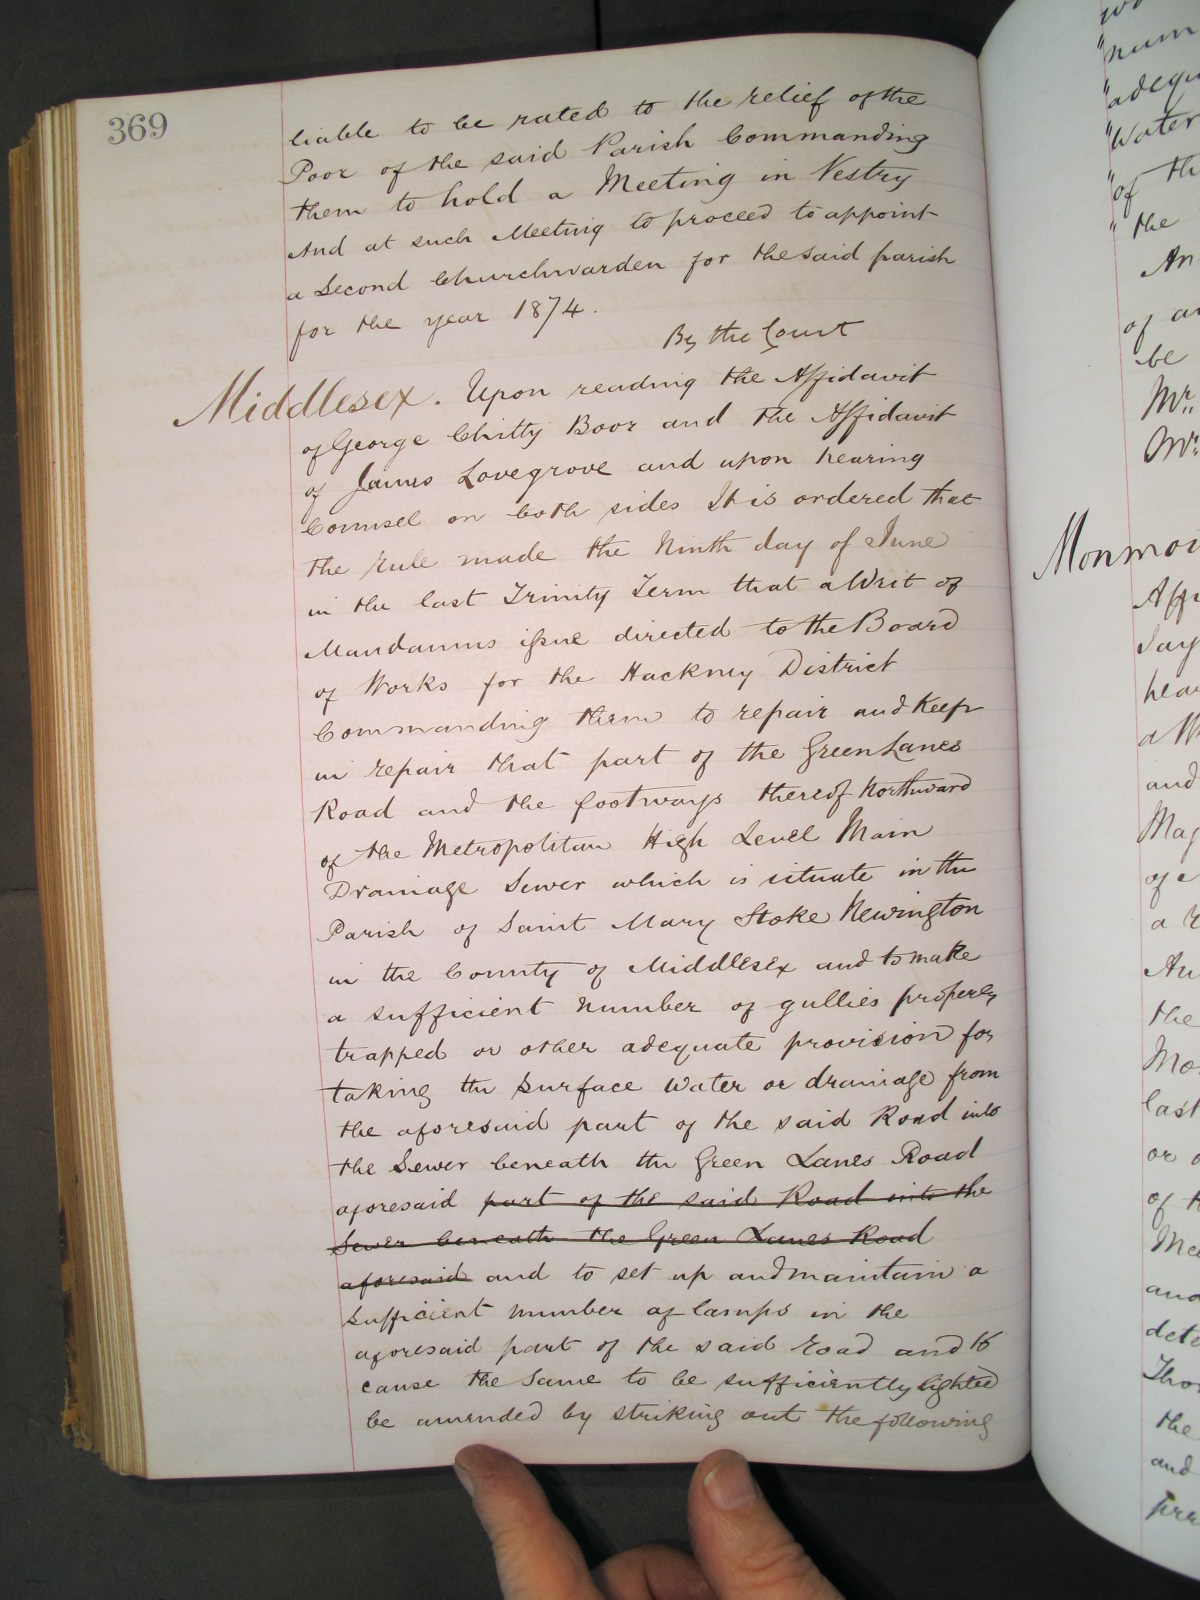 369
liable to be rated to the relief of the
Poor of the said Parish Commanding
them to hold a Meeting in Vestry
And at such Meeting to proceed to appoint
a Second Churchwarden for the said parish
for the year 1874.
By the Court
Middlesex. Upon reading the Affidavit
of George Chitty Boor and the Affidavit
of James Lovegrove and upon hearing
Counsel on both sides It is ordered that
the rule made the Ninth day of June
in the last Trinity Term that a Writ of
Mandamus issue directed to the Board
of Works for the Hackney District
Commanding them to repair and keep
in repair that part of the Green Lanes
Road and the footways thereof Northward
of the Metropolitan High Level Main
Drainage Sewer which is situate in the
Parish of Saint Mary Stoke Newington
in the County of Middlesex and to make
a sufficient number of gullies properly
trapped or other adequate provision for
taking the surface water or drainage from
the aforesaid part of the said Road into
the Sewer beneath the Green Lanes Road
aforesaid part of the said Road into the
Sewer beneath the Green Lanes Road
aforesaid and to set up and maintain a
sufficient number of lamps in the
aforesaid part of the said road and to
cause the same to be sufficiently lighted
be amended by striking out the following
"num
"adequ
"Water
"of th
" the
An
of an
be
Mr
Mr
Monmou
Affi
Jay
hea
a W
and
Maj
of
a
An
the
Mo
last
or
of
Me
and
dete
Tho
the
and